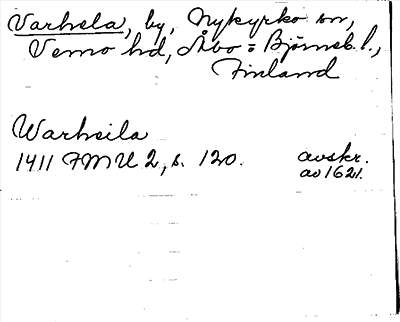 Varhela, by, Nykyrko sn,
Vemo hd, Åbo = Björneb. l.,
Finland
Warheila
1411 FMU 2, s. 120. avskr.
av 1621.